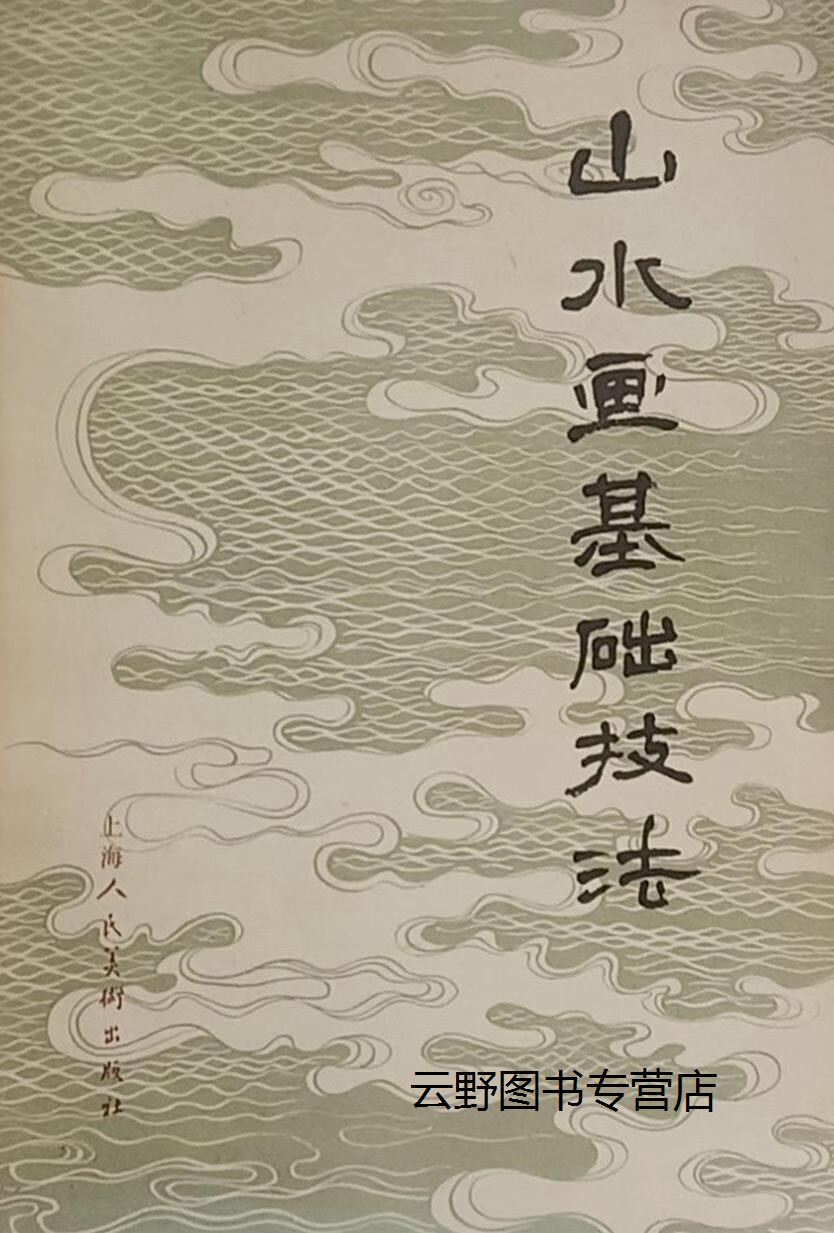 山水画基础技法
上海人民美術出版社
云野图书专营店